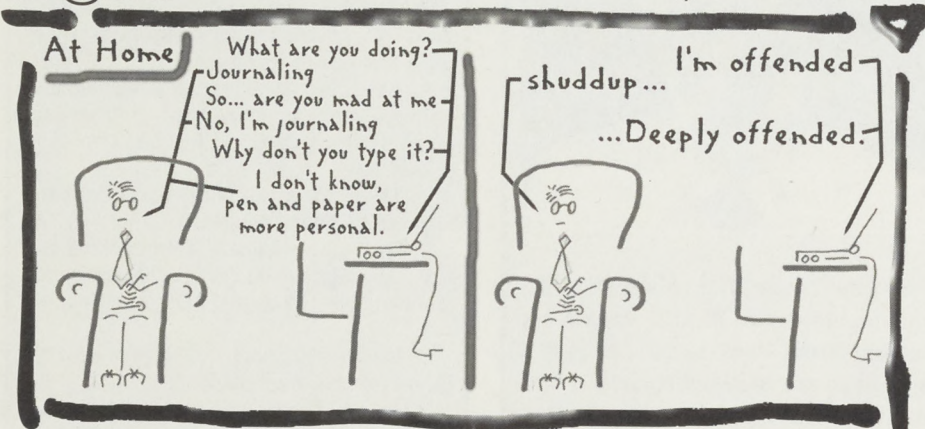 At Home
What are you doing?
Journaling
So... are you mad at me
No, I'm journaling
Why don't you type it?
I don't know,
pen and paper are
more personal.
shuddup...
I'm offended
...Deeply offended.